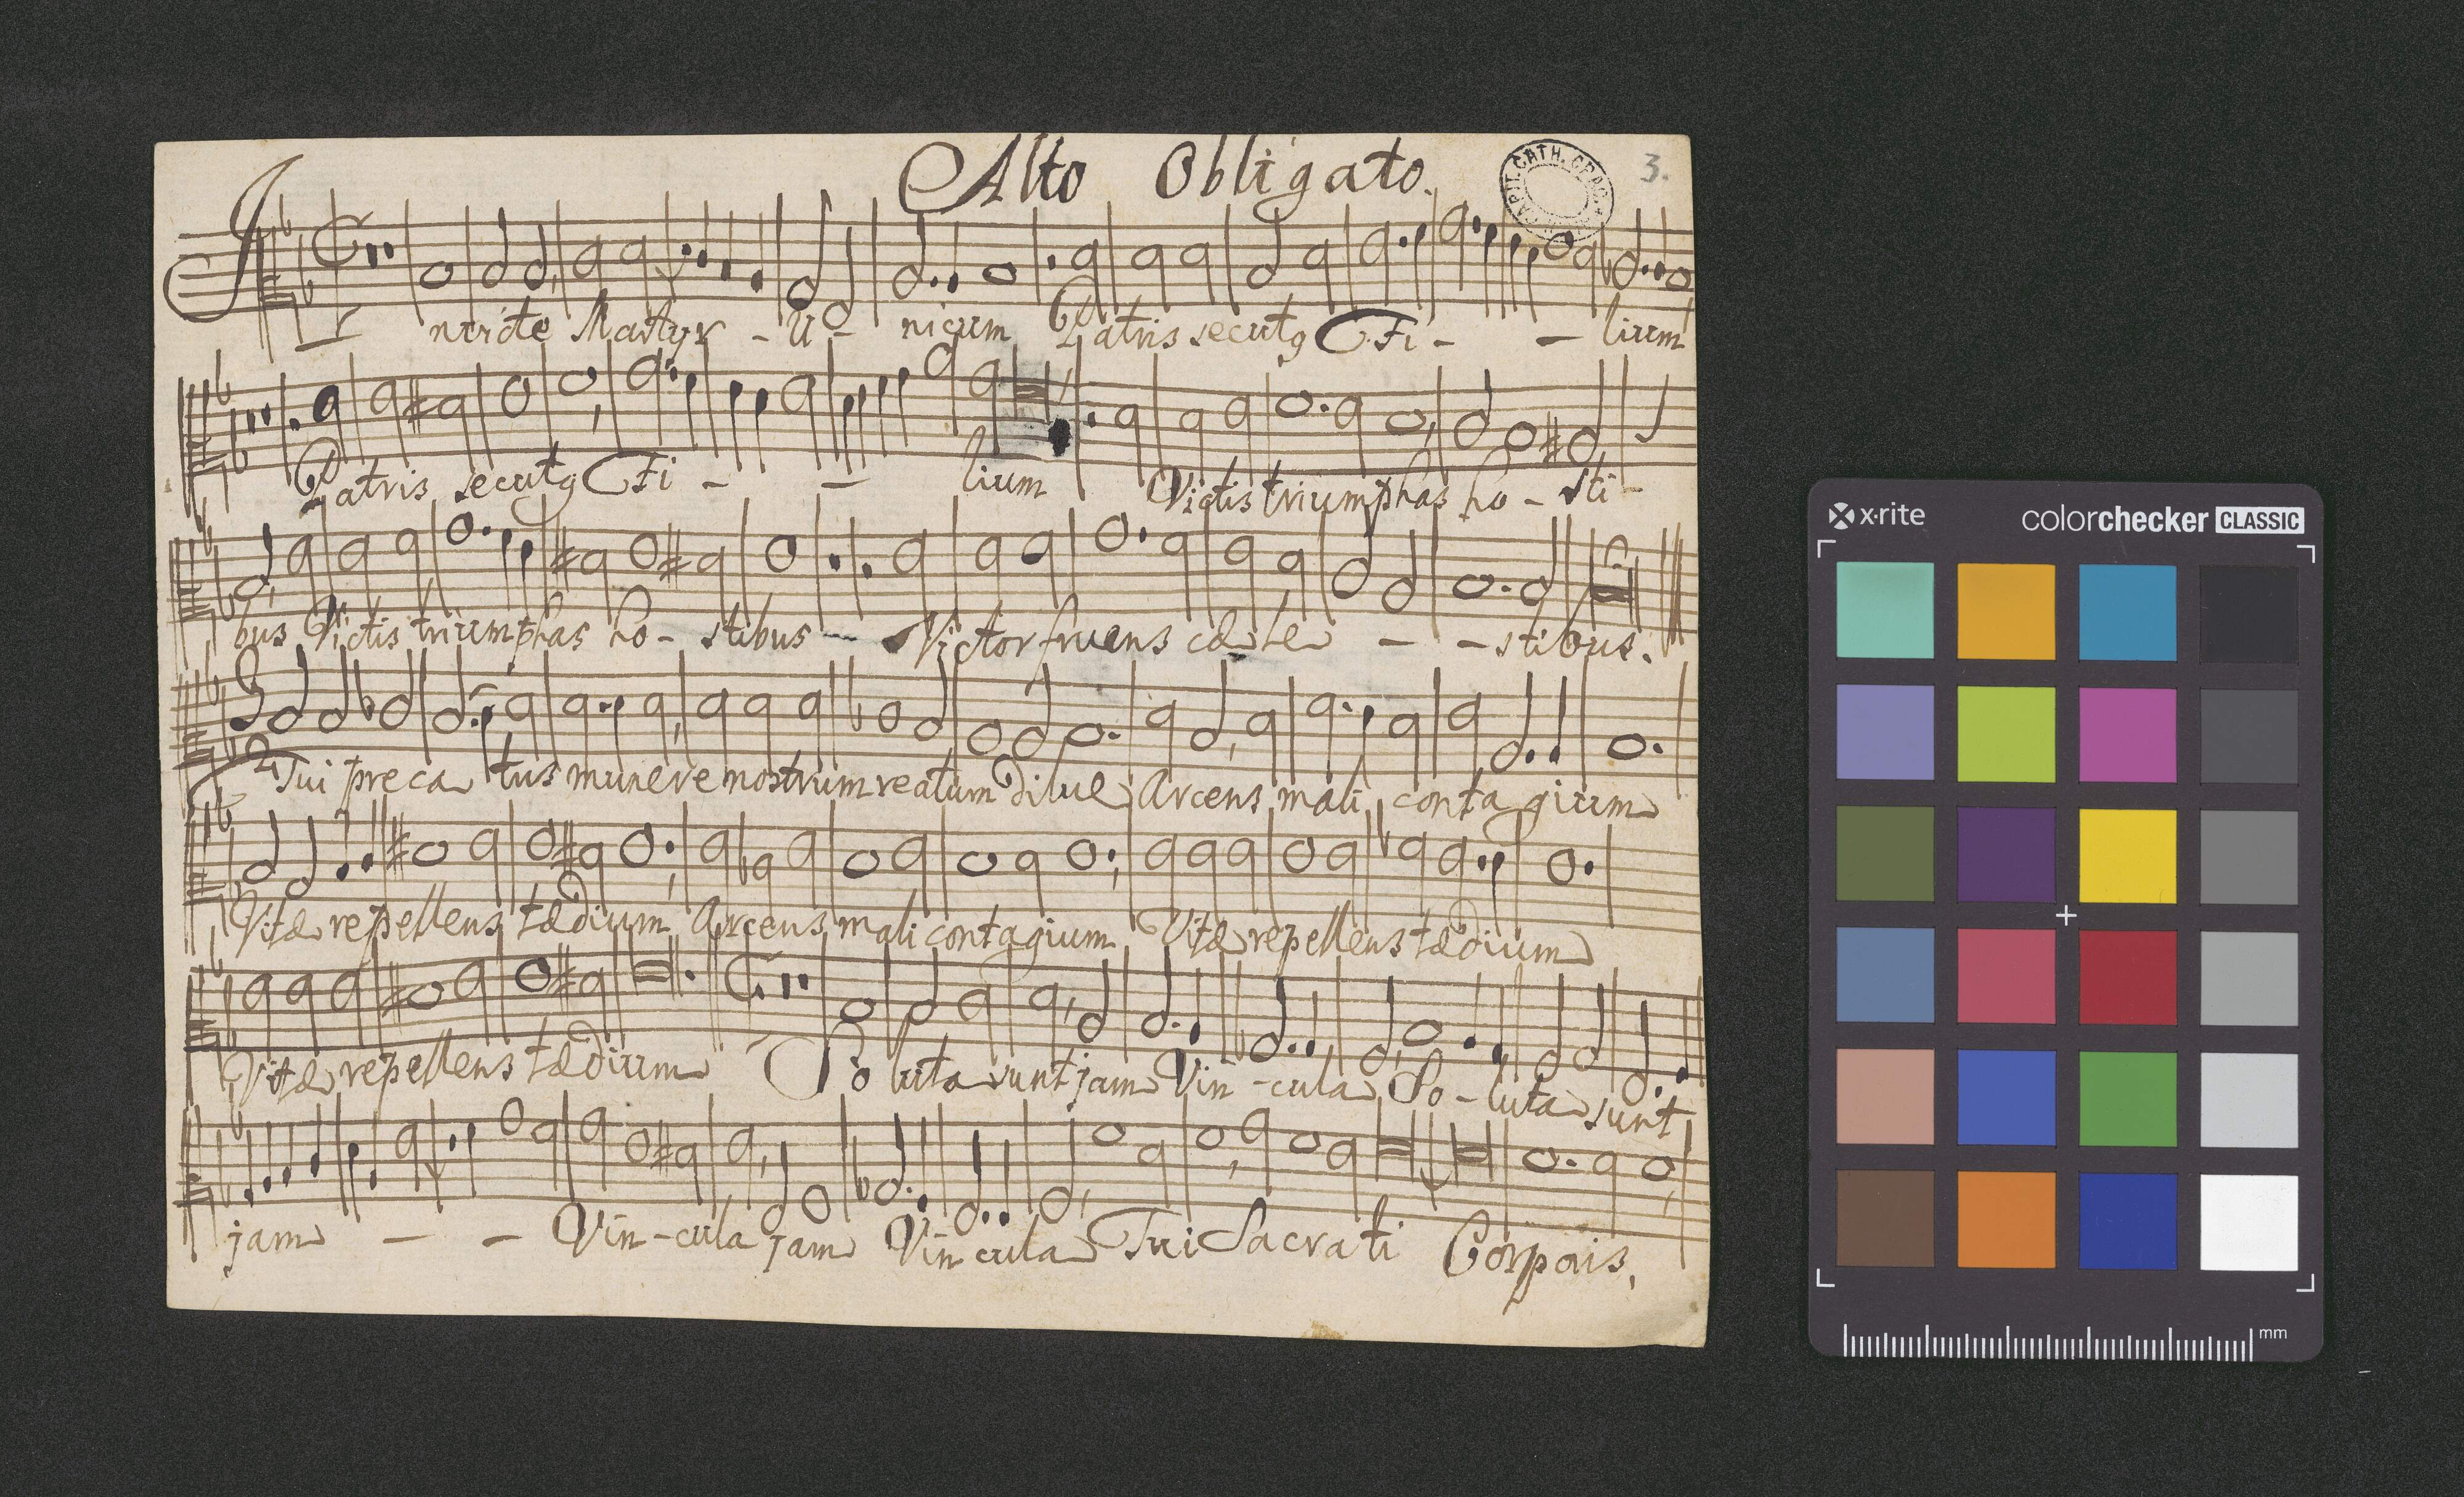 Alto Obligato.
3.
Invicte Martyr - U - nicum Patris secutg Fi - - lium
Patris secutg Fi - - lium Victis triumphas ho - sti -
bus Victis triumphas ho - stibus - Victor fruens cæle - - stibus.
Tui preca tus munere nostrum reatum dilue Arcens mali contagium
Vitæ repellens tædium Arcens mali contagium Vitæ repellens tædium
Vitæ repellens tædium So luta sunt jam Vin - cula So - luta sunt
jam - - Vin - cula jam Vin cula Tui Sacrati Corporis,
x·rite
colorchecker CLASSIC
mm